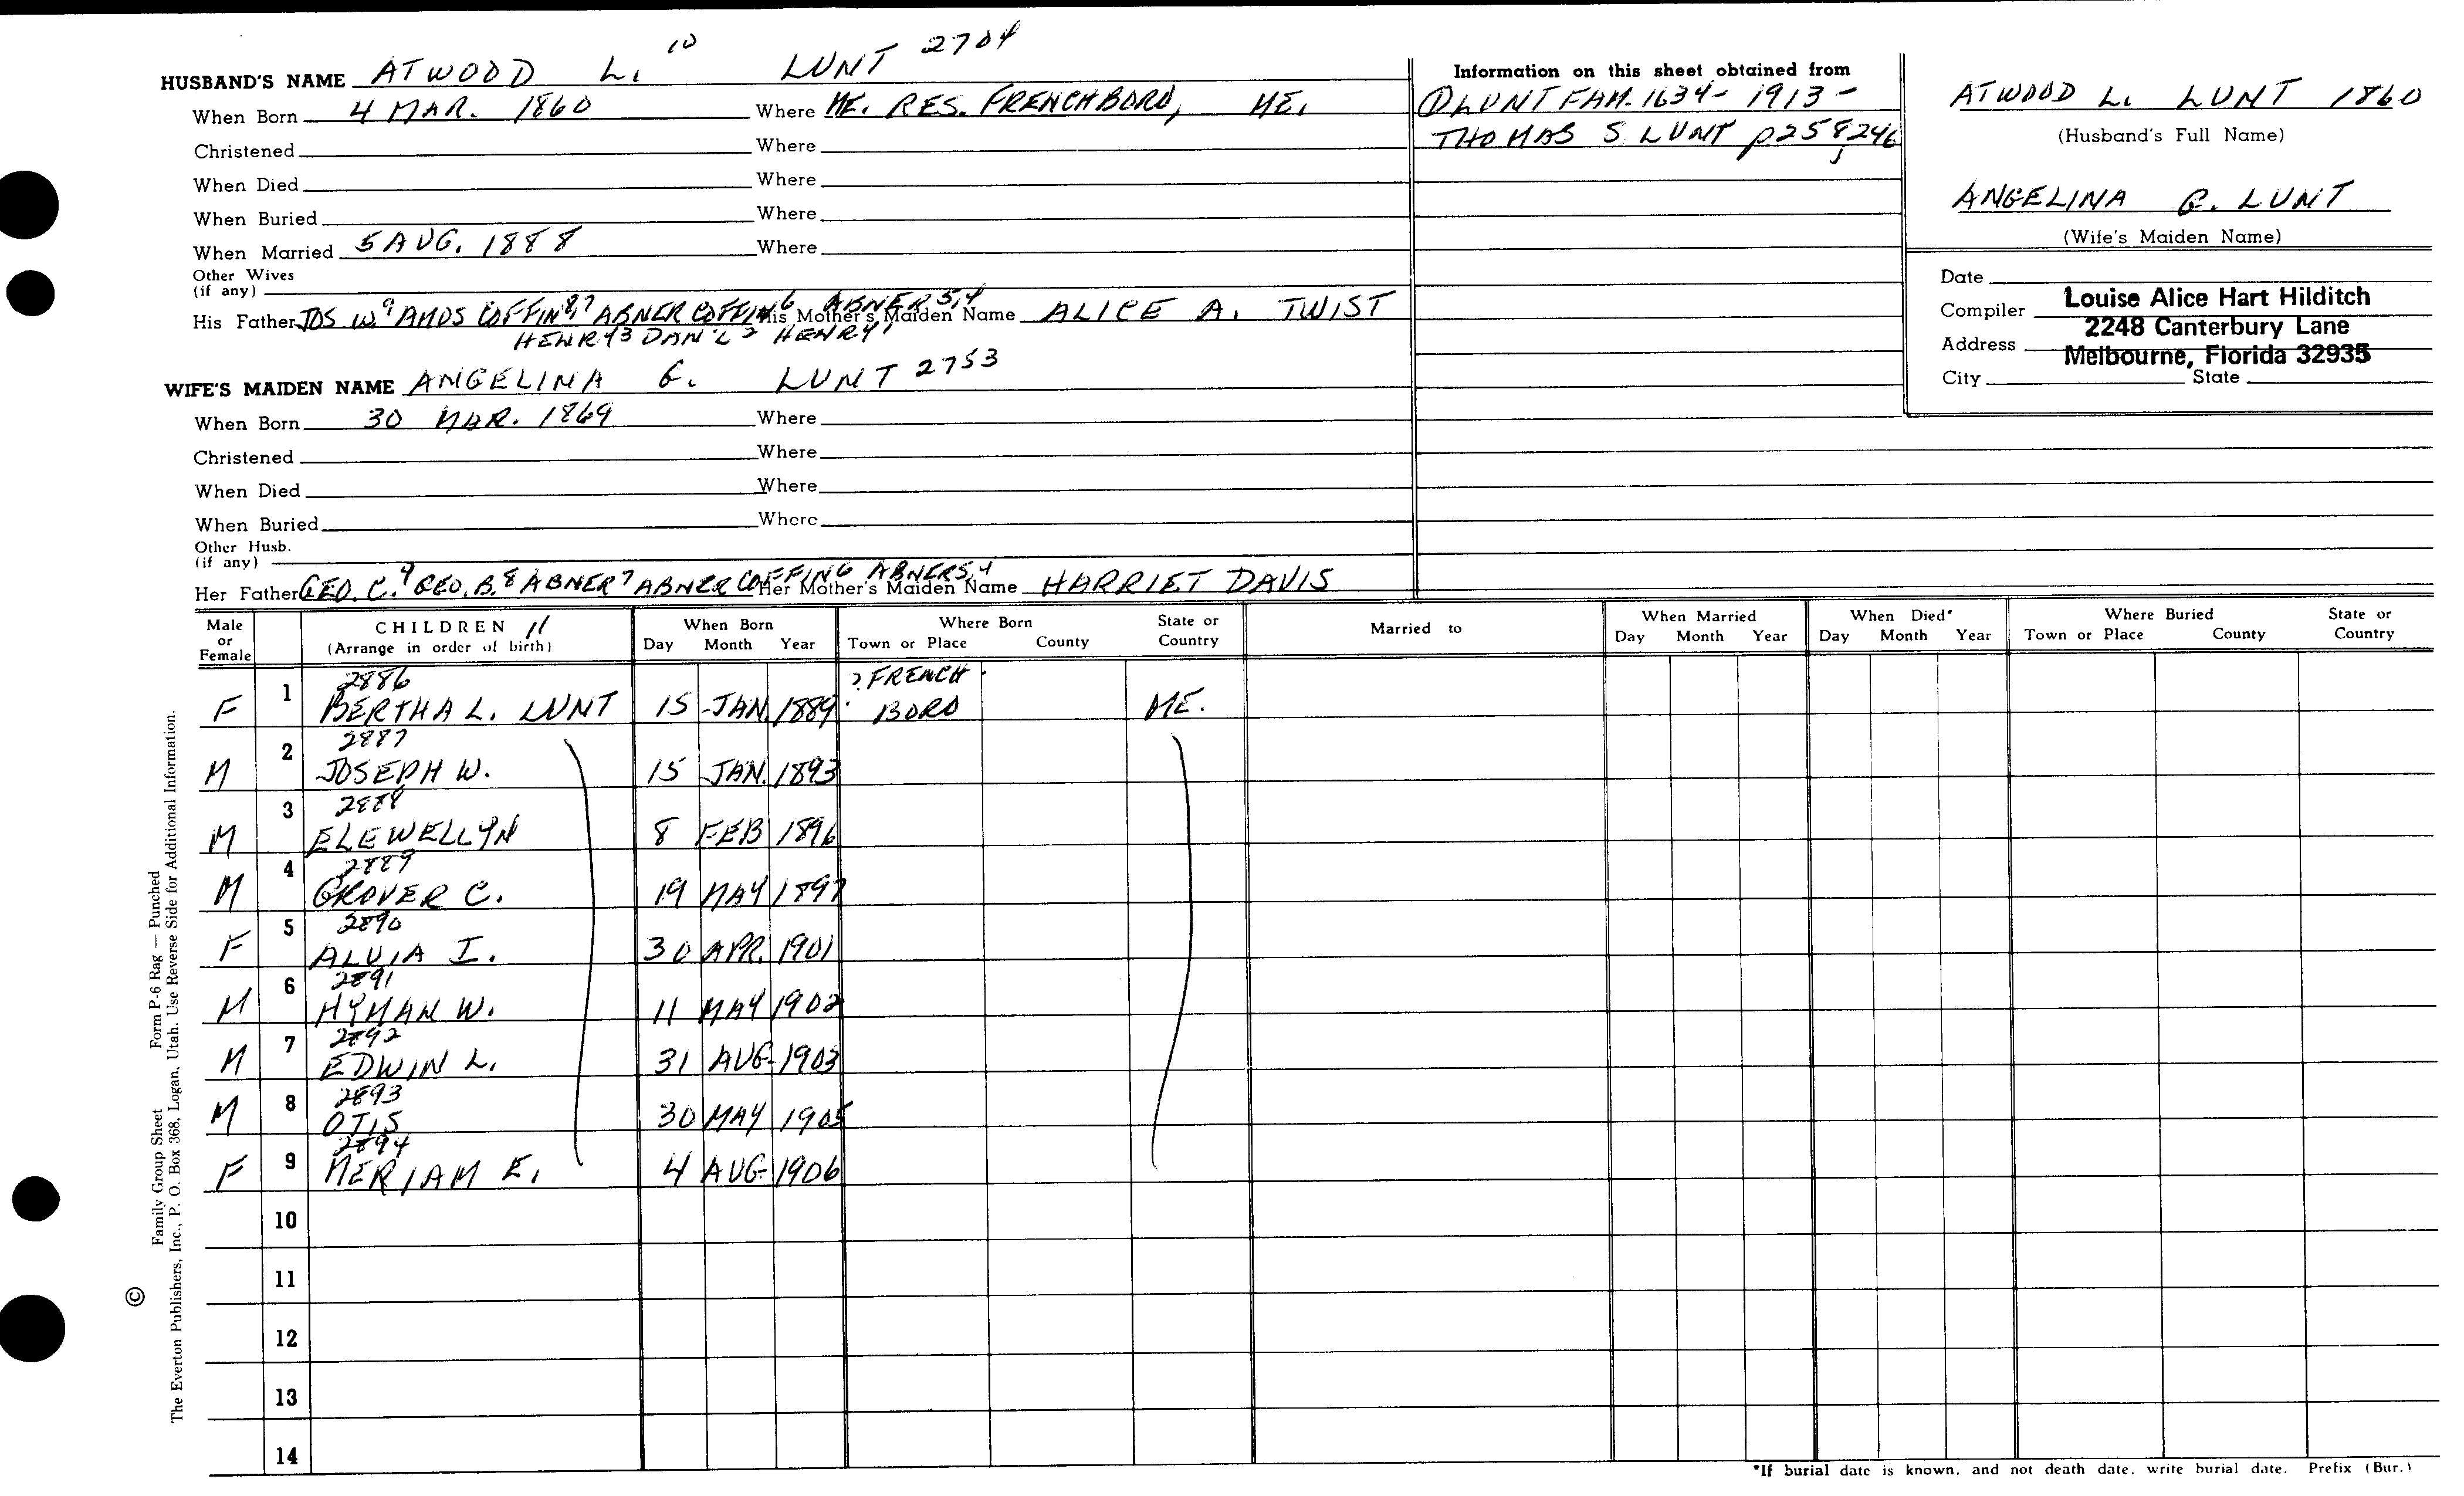 HUSBAND'S NAME ATWOOD L. 10 LUNT 2704
When Born 4 MAR. 1860 Where ME. RES. FRENCHBORO, ME.
Christened Where
When Died Where
When Buried Where
When Married 5 AUG. 1888 Where
Other Wives
(if any)
His Father JOS W.9 AMOS COFFIN 8,7 ABNER COFFIN 6 ABNER 5,4 His Mother's Maiden Name ALICE A. TWIST
HENRY 3 DAN'L 2 HENRY 1
WIFE'S MAIDEN NAME ANGELINA G. LUNT 2753
When Born 30 MAR. 1869 Where
Christened Where
When Died Where
When Buried Where
Other Husb.
(if any)
Her Father GEO. C.9 GEO. B.8 ABNER 7 ABNER COFFIN 6 ABNER 5,4 Her Mother's Maiden Name HARRIET DAVIS
Information on this sheet obtained from
① LUNT FAM. 1634 - 1913 -
THOMAS S. LUNT p 258, 246
ATWOOD L. LUNT 1860
(Husband's Full Name)
ANGELINA G. LUNT
(Wife's Maiden Name)
Date
Compiler Louise Alice Hart Hilditch
Address 2248 Canterbury Lane
Melbourne, Florida 32935
City State
Male or Female CHILDREN 11 (Arrange in order of birth) When Born Day Month Year Where Born Town or Place County State or Country Married to When Married Day Month Year When Died* Day Month Year Where Buried Town or Place County State or Country
2886 ? FRENCH
F 1 BERTHA L. LUNT 15 JAN. 1889 BORO ME.
2887
M 2 JOSEPH W. 15 JAN. 1893
2888
M 3 ELEWELLYN 8 FEB 1896
2889
M 4 GROVER C. 19 MAY 1897
2890
F 5 ALVIA I. 30 APR. 1901
2891
M 6 HYMAN W. 11 MAY 1902
2892
M 7 EDWIN L. 31 AUG. 1903
2893
M 8 OTIS 30 MAY 1905
2894
F 9 MERIAM E. 4 AUG. 1906
10
11
12
13
14
*If burial date is known, and not death date, write burial date. Prefix (Bur.)
© Family Group Sheet Form P-6 Rag — Punched
The Everton Publishers, Inc., P. O. Box 368, Logan, Utah. Use Reverse Side for Additional Information.